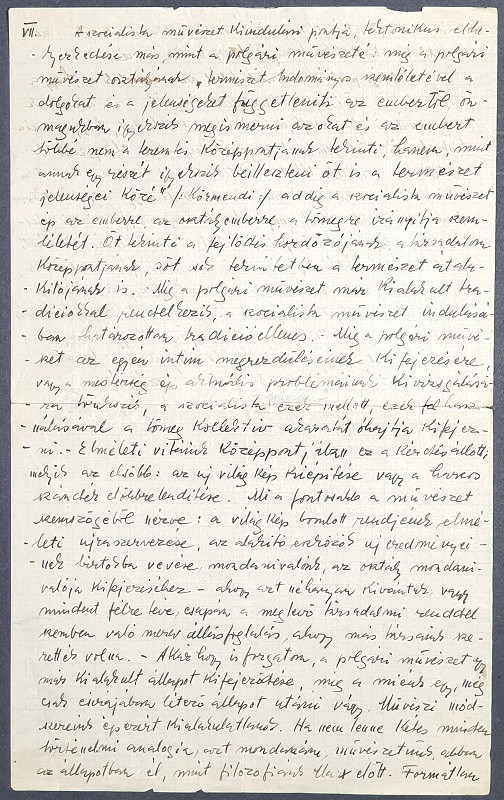 VII. A szocialista művészet kiindulási pontja, tektonikus elhe-
- lyezkedése más, mint a polgári művészeté: míg a polgári
művészet osztályának „természettudományos szemléletével a
dolgokat és a jelenségeket függetleníti az embertől, ön-
magukban igyekszik megismerni azokat és az embert
többé nem a teremtés középpontjának tekinti, hanem, mint
annak egy részét igyekszik beilleszteni őt is a természet
jelenségei közé" /:Körmendi:/ addig a szocialista művészet
ép az emberre, az osztályemberre, a tömegre irányítja szem-
léletét. Őt tekinti a fejlődés hordozójának, a társadalom
középpontjának, sőt sok tekintetben a természet átala-
- kítójának is. - Míg a polgári művészet már kialakult tra-
- díciókkal rendelkezik, a szocialista művészet indulásá-
- ban határozottan tradícióellenes. - Míg a polgári művé-
- szet az egyén intim megrezdüléseinek kifejezésére,
vagy a mesterség ép aktuális problémáinak kivizsgálásá-
- ra törekszik, a szocialista ezek mellett, ezek felhasz-
- nálásával a tömeg kollektív akaratát óhajtja kifejez-
- ni. - Elméleti vitáink középpontjában ez a kérdés állott;
melyik az előbb: az új világkép kiépítése vagy a harcos
szándék előtérbe lendítése. Mi a fontosabb a művészet
szemszögéből nézve: a világkép bomlott rendjének elmé-
- leti újraszervezése, az alakító eszközök új eredményei-
- nek birtokba vevése, mondanivalónk, az osztály mondani-
valója kifejezéséhez - ahogy azt néhányan kívántuk, vagy
mindent félre téve, csupán a meglevő társadalmi renddel
szemben való merev állásfoglalás, ahogy más társaink sze-
rették volna. - Akárhogy is forgatom, a polgári művészet egy
már kialakult állapot kifejeződése, míg a miénk egy, még
csak csírájában létező állapot utáni vágy. Művészi mód-
szereink épezért kialakulatlanok. Ha nem lenne kétes minden
történelmi analógia, azt mondanám, művészetünk abban
az állapotban él, mint filozófiánk Marx előtt. Formátlan